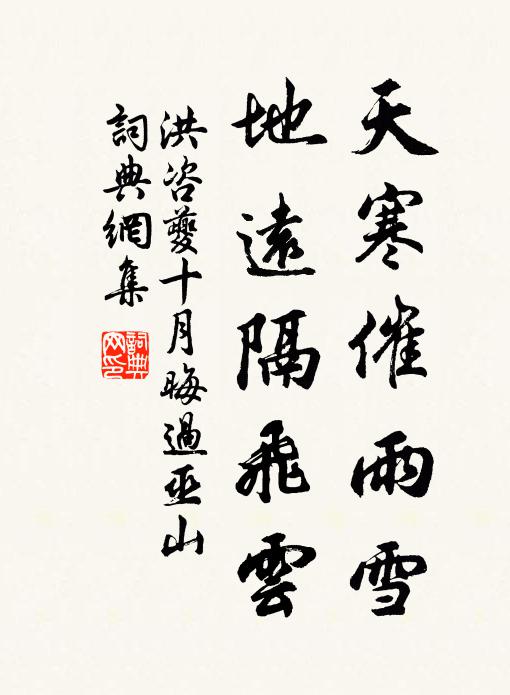 天寒催雨雪
地遠隔飛雲
洪咨夔十月晦過巫山
詞典網集
詞典網印